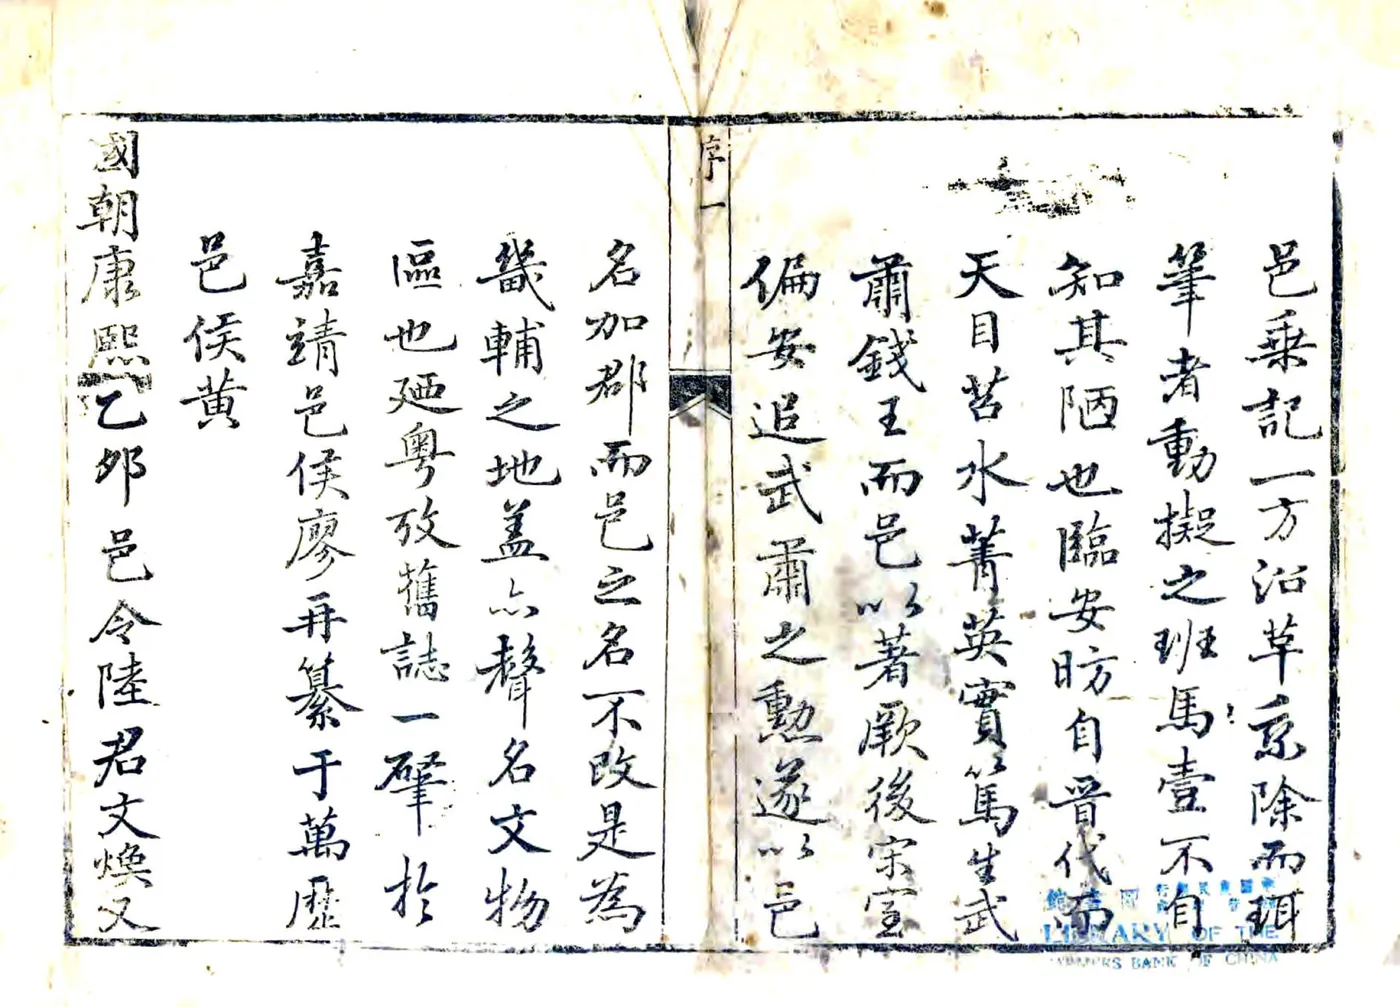 邑乗記一方沿革系除而珥
筆者動擬之班馬壹不自
知其陋也臨安昉自晉代而
天目苕水菁英實篤生武
肅錢王而邑以著厥後宋室
偏安追武肅之勲遂以邑
序一
名加郡而邑之名不改是為
畿輔之地盖亦聲名文物
區也廼粵攷舊誌一肇於
嘉靖邑侯廖再纂于萬歷
邑侯黄
國朝康熙乙夘邑令陸君文煥又
LIBRARY OF THE
FARMERS BANK OF CHINA